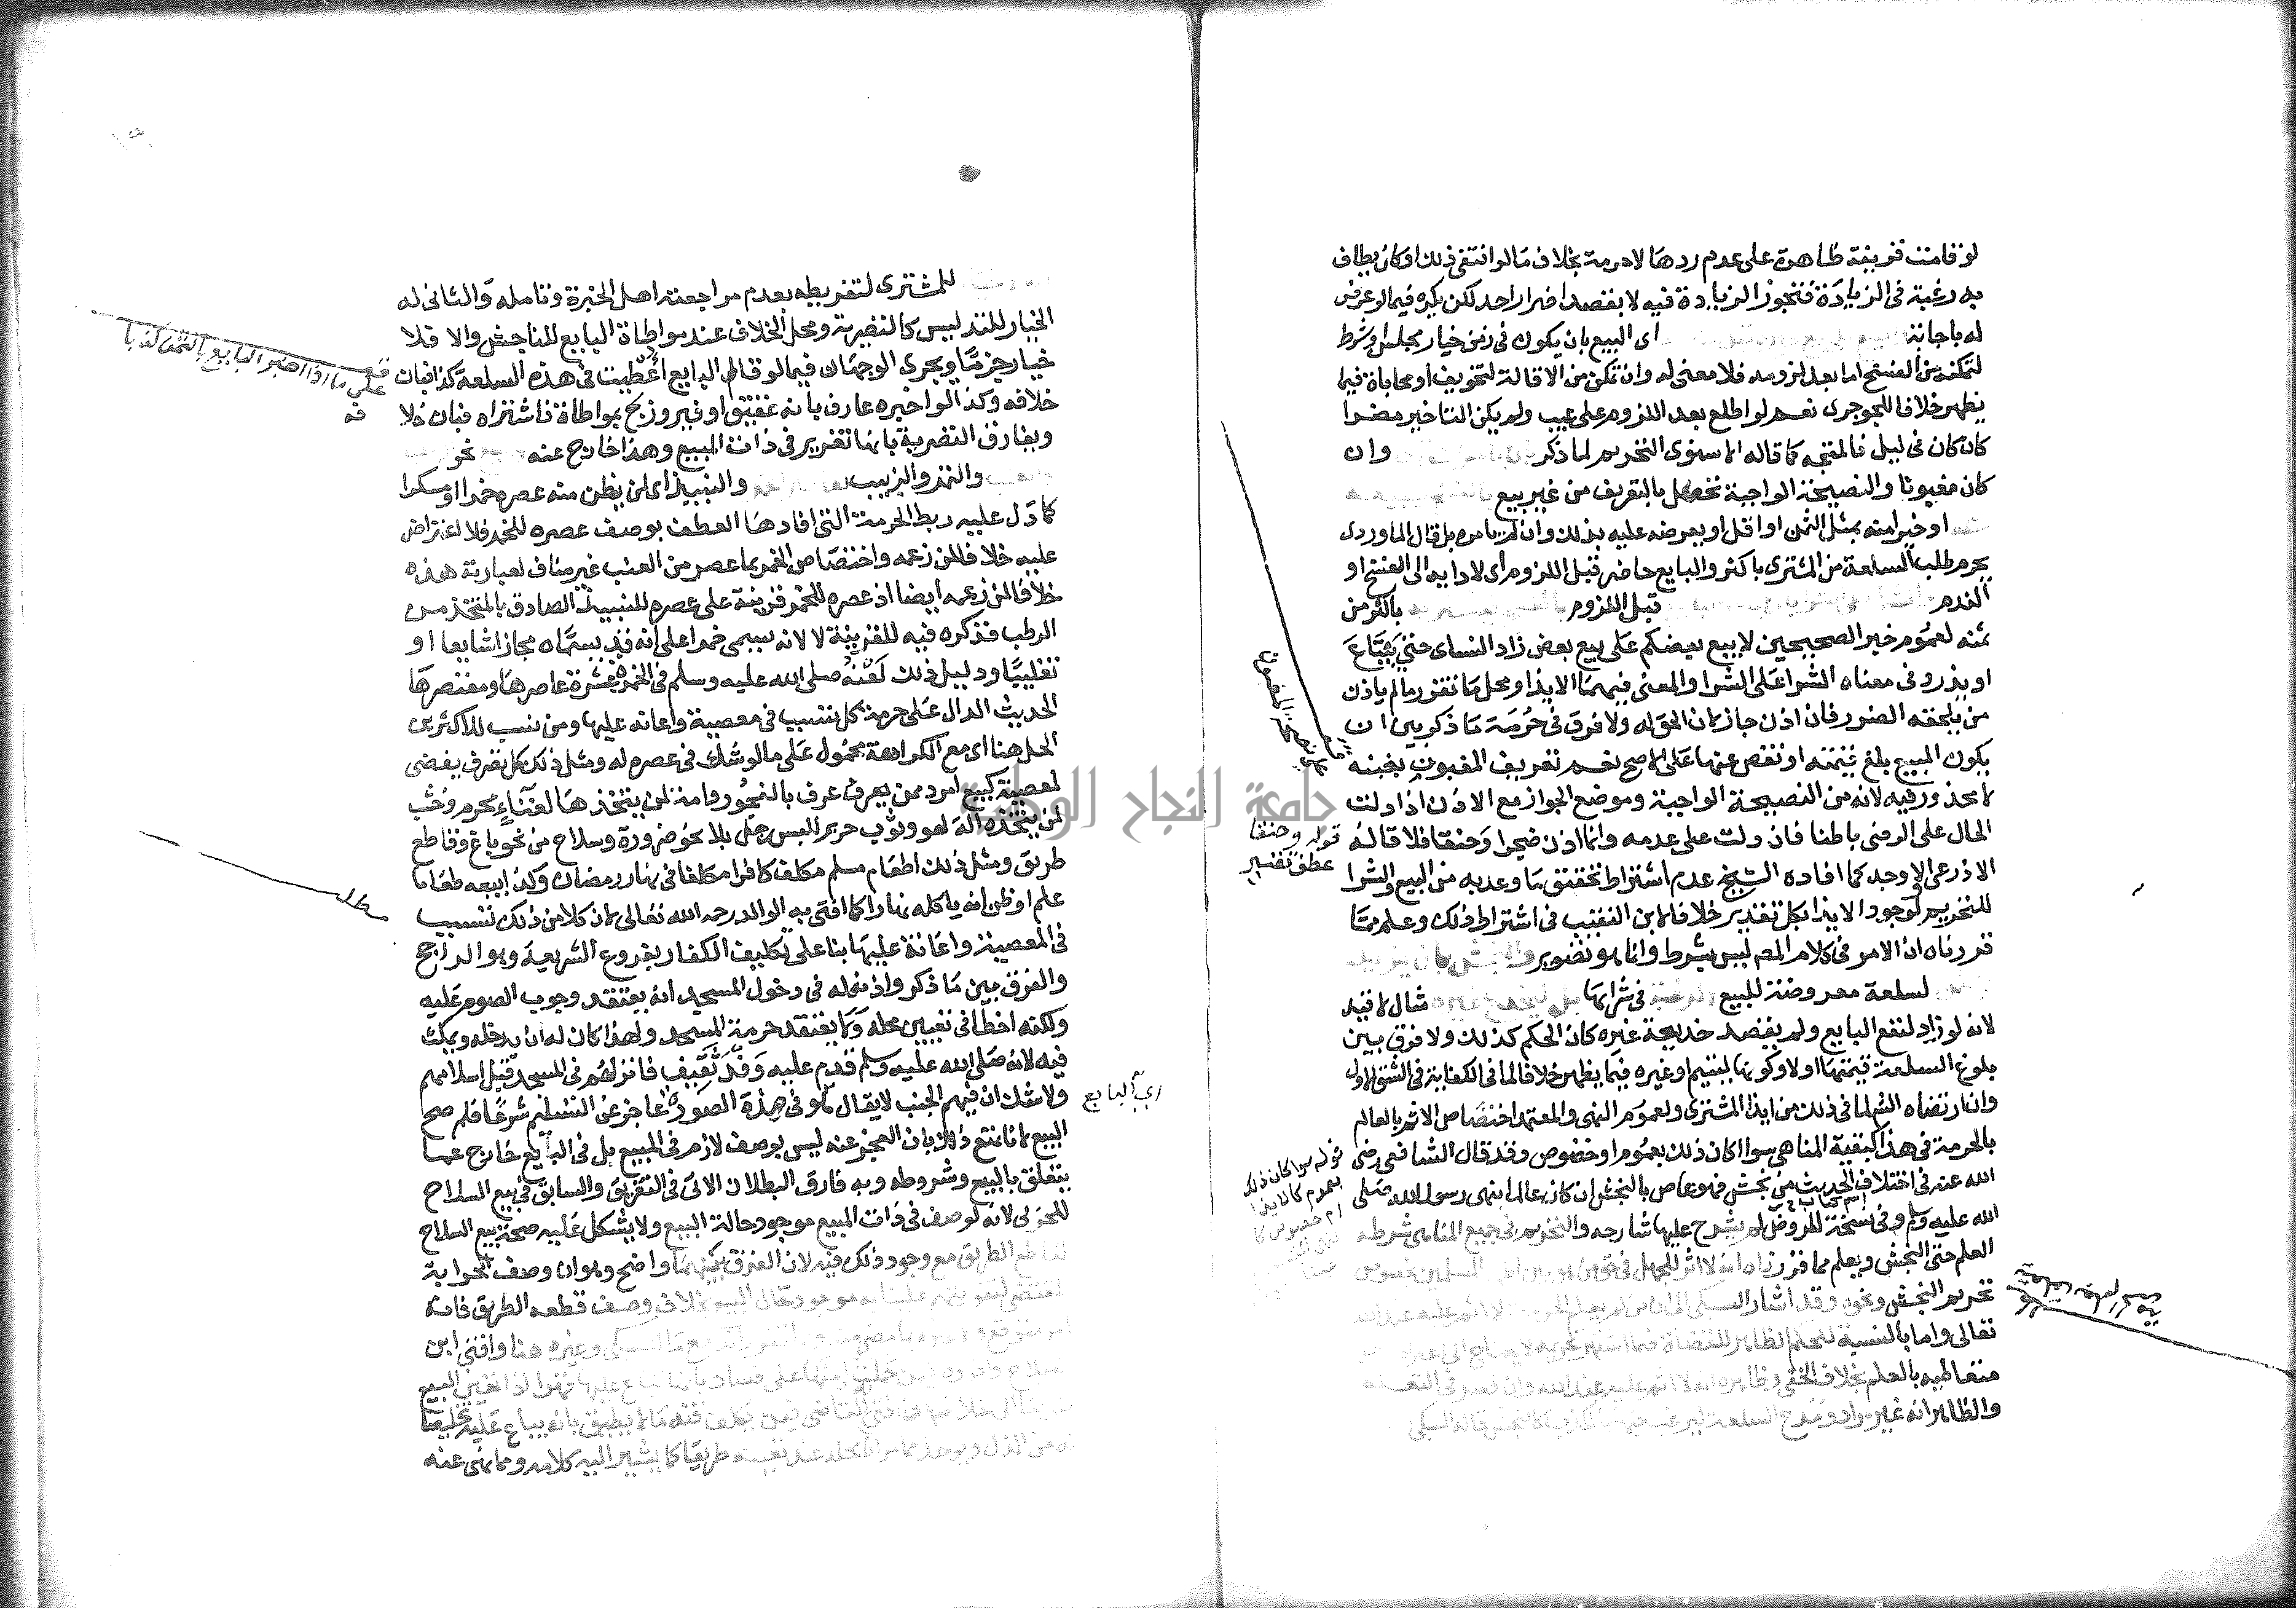 لو قامت قرينة ظاهرة على عدم ردها لا حرمة بخلاف ما لو انتفى ذلك او كان يطاف
به رغبة في الزيادة فتجوز الزيادة فيه لا بقصد اضرار احد لكن يكره فيما لو عرض
له باجابة اي البيع بان يكون في زمن خيار مجلس او شرط
لتمكنه من الفسخ اما بعد لزومه فلا معنى له وان تمكن من الاقالة لتخويف او محاباة فيما
يظهر خلافا للجوجري نعم لو اطلع بعد اللزوم على عيب ولم يكن التاخير مضرا
كان كان في ليل فالمتجه كما قاله الاسنوي التحريم لما ذكر وان
كان مغبونا والنصيحة الواجبة تحصل بالتعريف من غير بيع
او خيرا منه بمثل الثمن او اقل او يعرضه عليه بذلك وان لم يامره بل قال الماوردي
يحرم طلب السلعة من المشتري باكثر والبايع حاضر قبل اللزوم اي لادايه الى الفسخ او
الندم قبل اللزوم باكثر من
ثمنه لعموم خبر الصحيحين لا يبيع بعضكم على بيع بعض زاد النساى حتى يبتاع
او يذر وفي معناه الشرا على الشرا والمعنى فيهما الايذا ومحل ما تقرر ما لم ياذن
من يلحقه الضرر فان اذن جاز لان الحق له ولا فرق في حرمة ما ذكر بين ان
يكون المبيع بلغ قيمته او نقص عنها على الاصح نعم تعريف المغبون بغبنه
لا محذور فيه لانه من النصيحة الواجبة وموضع الجواز مع الاذن اذا دلت
الحال على الرضى باطنا فان دلت على عدمه وانما اذن ضجرا وحنقا فلا قاله
الاذرعي الاوجه كما افاده الشيخ عدم اشتراط تحقق ما وعد به من البيع والشرا
للتحريم لوجود الايذا بكل تقدير خلافا لابن النقيب في اشتراط ذلك وعلم مما
قررناه ان الامر في كلام المص ليس بشرط وانما هو تصوير والنجش بان يزيد
لسلعة معروضة للبيع في شرايها بل ليخدع غيره مثال لا قيد
لانه لو زاد لنفع البايع ولم يقصد خديعة غيره كان الحكم كذلك ولا فرق بين
بلوغ السلعة قيمتها او لا وكونها ليتيم او غيره فيما يظهر خلافا لما في الكفاية في الشق الاول
وان ارتضاه الشهاب في ذلك من ايذا المشتري ولعموم النهي والمعتمد اختصاص الاثم بالعالم
بالحرمة في هذا كبقية المناهي سوا كان ذلك بعموم او خصوص وقد قال الشافعي رضي
الله عنه في اختلاف الحديث من نجش فهو عاص بالنجش ان كان عالما بنهي رسول الله صلى
الله عليه وسلم وفي نسخة للروض لم يشرح عليها شارحه والتحريم في جميع المناهي شرطه
العلم حتى النجش ويعلم مما قررناه انه لا اثر للجهل في حق من هو بين اظهر المسلمين بخصوص
تحريم النجش ونحوه وقد اشار السبكي الى ان من لم يعلم الحرمة لا اثم عليه عند الله
تعالى واما بالنسبة للحكم الظاهر للقضاة فما اشتهر تحريمه لا يحتاج الى
متعاطيه بالعلم بخلاف الخفي وظاهره انه لا اثم عليه عند الله وان قصر في التعلم
والظاهر انه غير مراد ومدح السلعة ليرغب فيها كالنجش قاله السبكي
قوله وحنقا
عطف تفسير
قوله سوا كان ذلك
بعموم
للمشتري لتفريطه بعدم مراجعته اهل الخبرة وتامله والثاني له
الخيار للتدليس كالتصرية ومحل الخلاف عند مواطاة البايع للناجش والا فلا
خيار جزما ويجري الوجهان فيما لو قال البايع اعطيت في هذه السلعة كذا فبان
خلافه وكذا لو اخبره عارف بانه عقيق او فيروزج بمواطاة فاشتراه فبان خلا
ويفارق التصرية بانها تغرير في ذات المبيع وهذا خارج عنه نحو
والتمر والزبيب والنبيذ اي لمن يظن منه عصره خمرا او مسكرا
كما دل عليه ربط الحرمة التي افادها العطف بوصف عصره للخمر فلا اعتراض
عليه خلافا لمن زعمه واختصاص الخمر بما عصر من العنب غير مناف لعبارته هذه
خلافا لمن زعمه ايضا اذ عصره للخمر قرينة على عصره للنبيذ الصادق بالمتخذ من
الرطب فذكره فيه للقرينة لا لانه يسمى خمرا على انه قد يسماه مجازا شايعا او
تغليبا ودليل ذلك لعنه صلى الله عليه وسلم في الخمرة عشرة عاصرها ومعتصرها
الحديث الدال على حرمة كل تسبب في معصية واعانة عليها ومن نسب للاكثرين
الحل هنا اي مع الكراهة محمول على ما لو شك في عصره له ومثل ذلك كل تصرف يفضي
لمعصية كبيع امرد ممن يعرف عرف بالفجور وامة لمن يتخذها لغناء محرم وخشب
لمن يتخذه الة لهو وثوب حرير للبس رجل بلا نحو ضرورة وسلاح من نحو باغ وقاطع
طريق ومثل ذلك اطعام مسلم مكلف كافرا مكلفا في نهار رمضان وكذا بيعه طعاما
علم او ظن انه ياكله نهارا كما افتى به الوالد رحمه الله تعالى لان كلا من ذلك تسبب
في المعصية واعانة عليها بنا على تكليف الكفار بفروع الشريعة وهو الراجح
والفرق بين ما ذكر واذنه له في دخول المسجد انه يعتقد وجوب الصوم عليه
ولكنه اخطا في تعيين محله ولا يعتقد حرمة المسجد ولهذا كان له ان يدخله ويمكث
فيه لانه صلى الله عليه وسلم قدم عليه وفد ثقيف فانزلهم في المسجد قبل اسلامهم
ولا شك ان فيهم الجنب لا يقال هو في هذه الصورة عاجز عن التسليم شرعا فلم صح
البيع لانا نمنع ذلك بان العجز عنه ليس بوصف لازم في المبيع بل في البايع خارج عما
يتعلق بالبيع وشروطه وبه فارق البطلان الاتي في التفريق والسابق في بيع السلاح
للحربي لانه لوصف في ذات المبيع موجود حالة البيع ولا يشكل عليه صحة بيع السلاح
لقاطع الطريق مع وجود ذلك فيه لان الفرق بينهما واضح وهو ان وصف الحرابة
المقتضي لتقويتهم علينا به موجود حال البيع بخلاف وصف قطعه الطريق فانه
امر متوقع وغيره هنا وافتى ابن
الصلاح
طريقا كما يشير اليه كلامه ومما نهي عنه
على ما اذا اخبر البايع بالثمن كذبا
مطلب
اي البايع